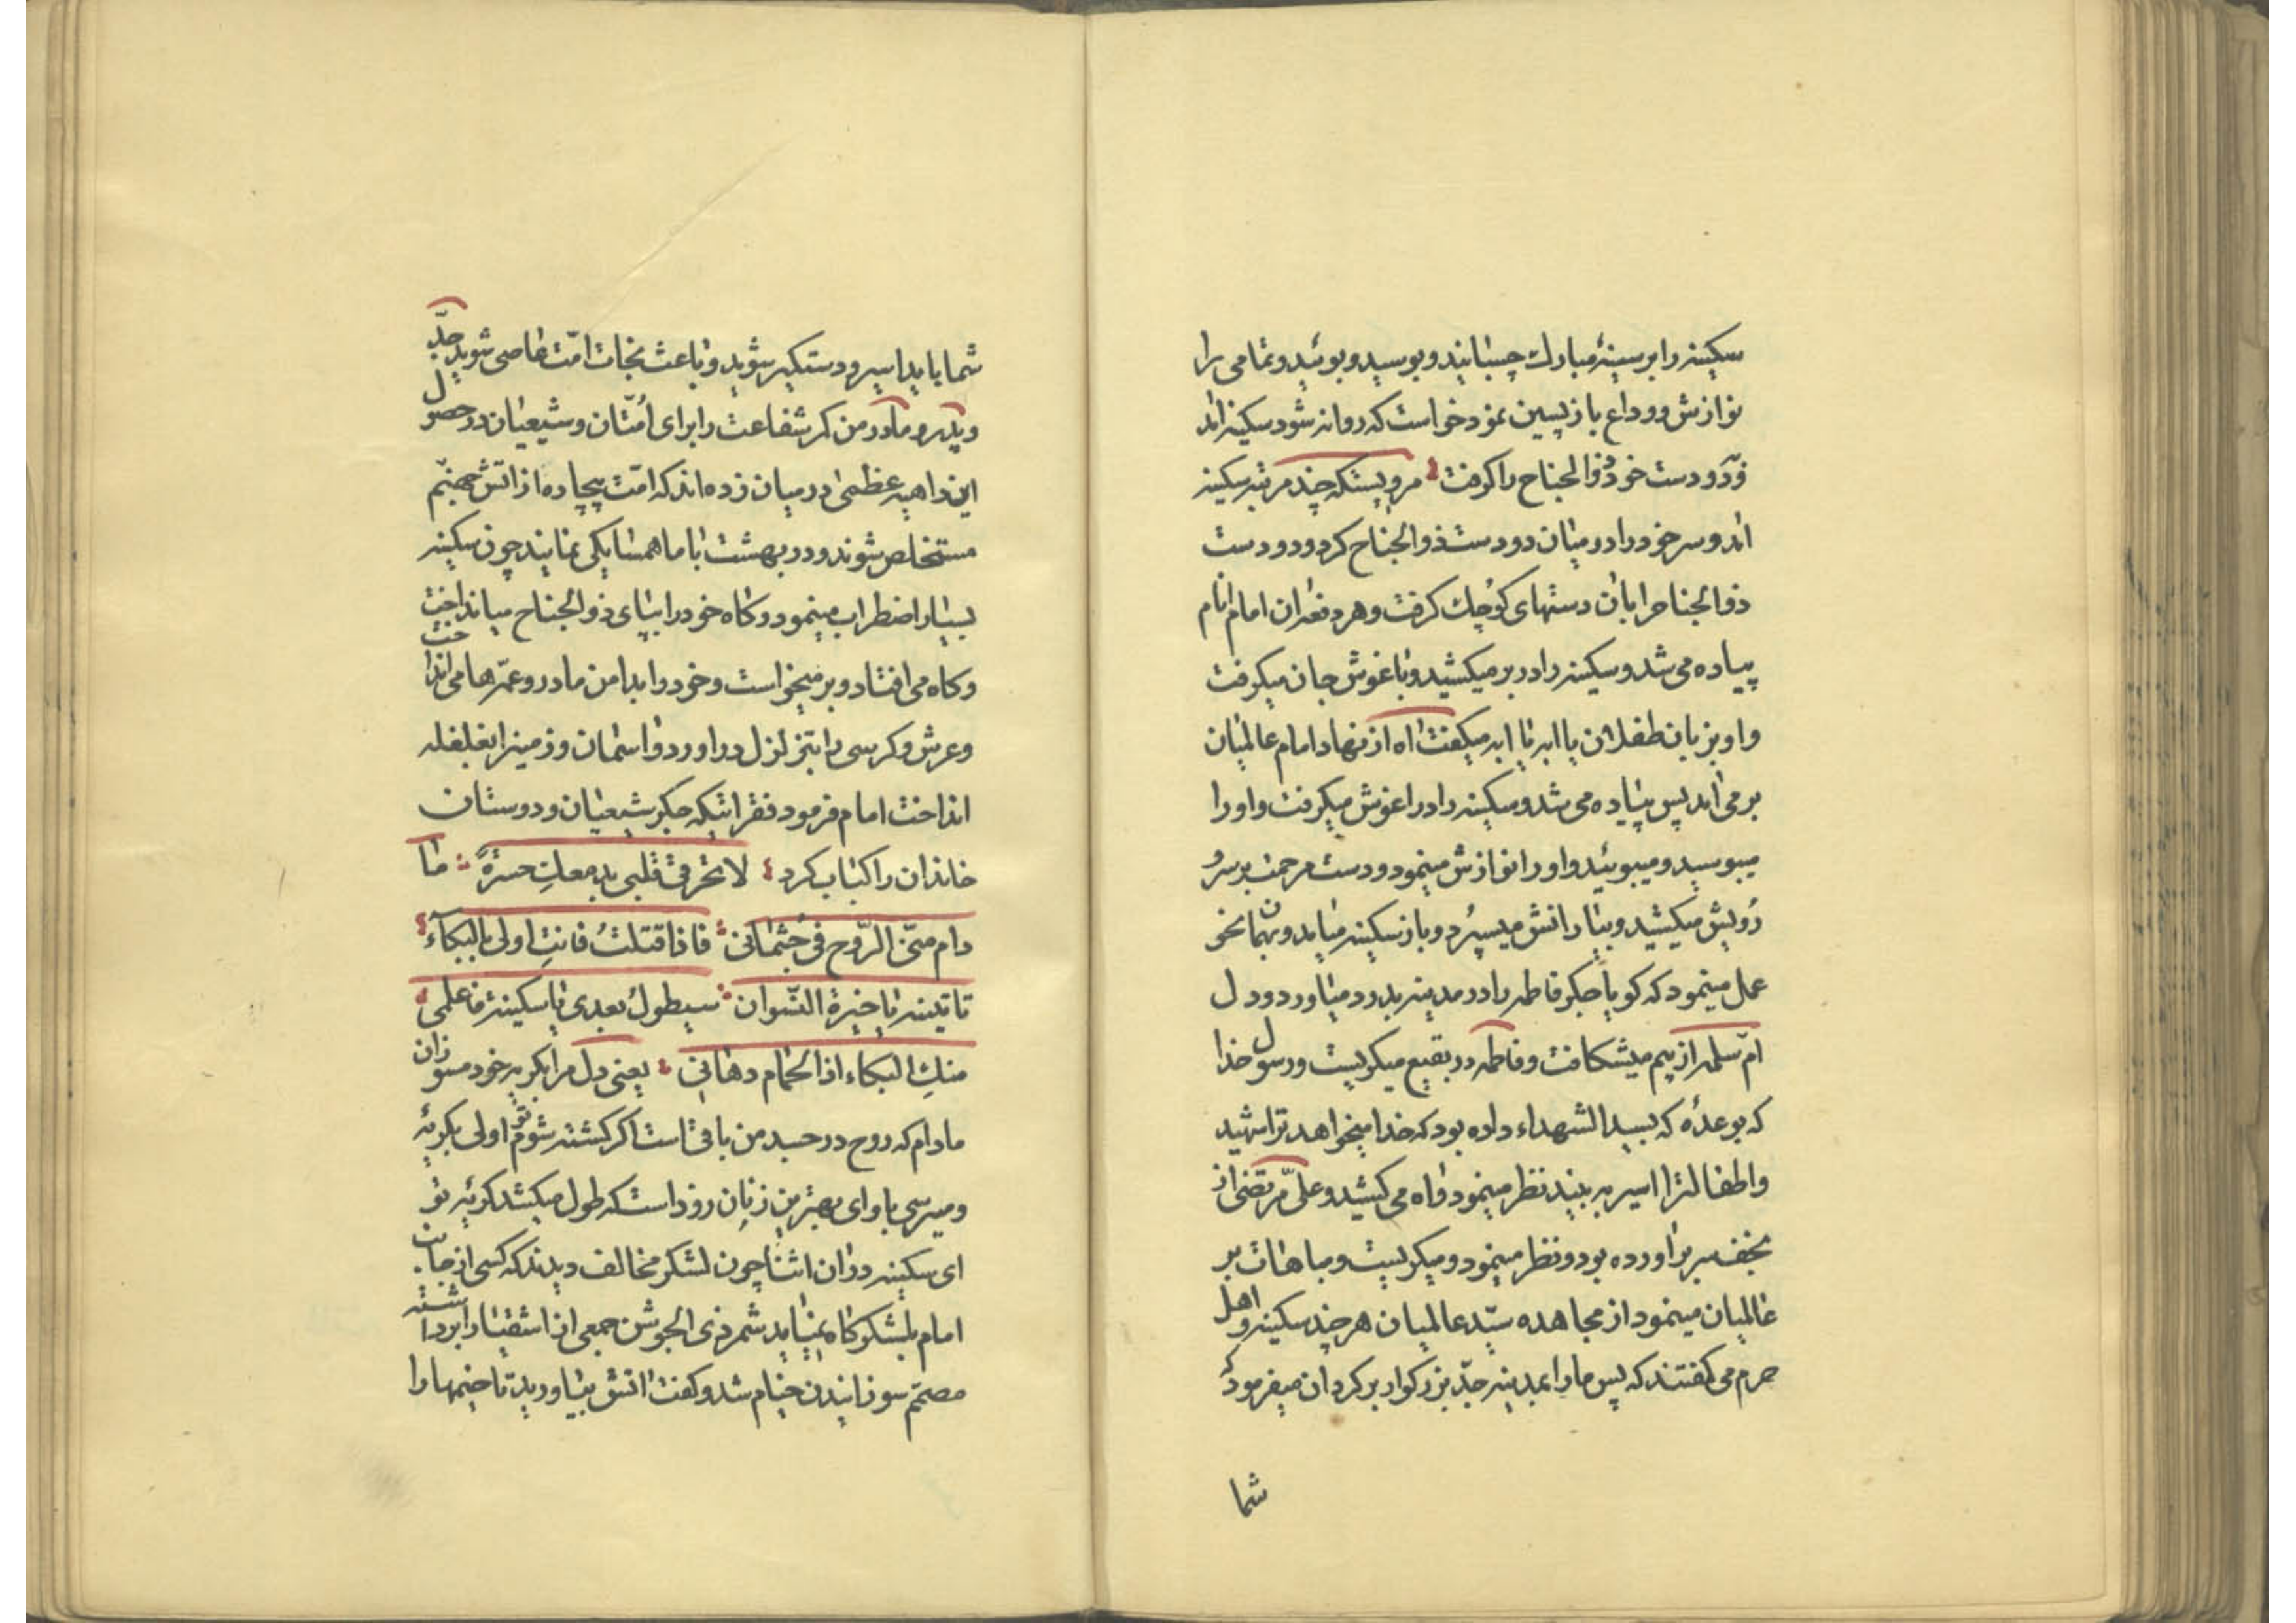 سکینه را بر سینهٔ مبارک چسبانید و بوسید و بوئید و تمامی را
نوازش و وداع بازپسین نمود خواست که روانه شود سکینه امد
و دو دست خود ذوالجناح را گرفت مرویستکه چند مرتبه سکینه
امد و سر خود را در میان دو دست ذوالجناح کرد و دو دست
ذوالجناح را بان دستهای کوچک گرفت و هر دفعه ان امام انام
پیاده می شد و سکینه را در بر میکشید و باغوش جان میگرفت
و او بزبان طفلان یا ابه یا ابه میگفت اه از نهاد امام عالمیان
بر می امد پس پیاده می شد و سکینه را در اغوش میگرفت و او را
میبوسید و میبوئید و او را نوازش مینمود و دست مرحمت بر سر و
رویش میکشید و بیارانش میسپرد و باز سکینه میامد و بهمان نحو
عمل مینمود که گویا جگر فاطمه را در مدینه بدرد میاورد و دل
امّ سلمه از بیم میشکافت و فاطمه در بقیع میگریست و رسول خدا
که بوعدهٔ که بسید الشهداء داده بود که خدا میخواهد ترا شهید
و اطفالترا اسیر به بیند نظر مینمود و اه می کشید و علیّ مرتضی از
نجف سر بر اورده بود و نظر مینمود و میگریست و مباهات بر
عالمیان مینمود از مجاهده سیّد عالمیان هر چند سکینه و اهل
حرم می گفتند که پس ما را بمدینه جدّ بزرگوار برگردان میفرمود که
شما
شما باید اسیر و دستگیر شوید و باعث نجات امّت عاصی شوید جدّ
و پدر و مادر من که شفاعت را برای اُمّتان و شیعیان در حصول
این داهیه عظمی در میان زده اند که امّت بیچاره از اتش جهنّم
مستخلص شوند و در بهشت با ما همسایگی نمایند چون سکینه
بسیار اضطراب مینمود و گاه خود را بپای ذوالجناح میانداخت
و گاه می افتاد و بر میخواست و خود را بدامن مادر و عمّه ها می انداخت
و عرش و کرسی را بتزلزل در اورد و اسمان و زمین را بغلغله
انداخت امام فرمود فقراتیکه جگر شیعیان و دوستان
خاندان را کباب کرد لا تحرقی قلبی بدمعکِ حسرةً ما
دام منّی الرّوح فی جُثمانی فاذا قتلتُ فانتِ اولی بالبکآء
تاتینه یا خیرة النّسوان سیطولُ بعدی یا سکینة فاعلمی
منکِ البکاء اذا الحمام دهانی یعنی دل مرا بگریه خود مسوزان
مادام که روح در جسد من باقی است اگر کشته شوم تو اولی بگریهٔ
و میرسی باو ای بهترین زنان زود است که طول میکشد گریهٔ تو
ای سکینه در ان اثنا چون لشگر مخالف دیدند که کسی از جانب
امام بلشگرگاه نمیاید شمر ذی الجوشن جمعی از اشقیا را برداشته
مصمّم سوزانیدن خیام شد و گفت اتش بیاورید تا خیمها را